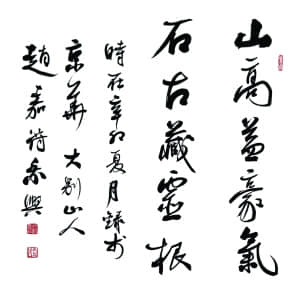 山高益豪氣
石古藏靈根
時在辛卯夏月錄於
京華 大別山人
趙嘉禱乘興